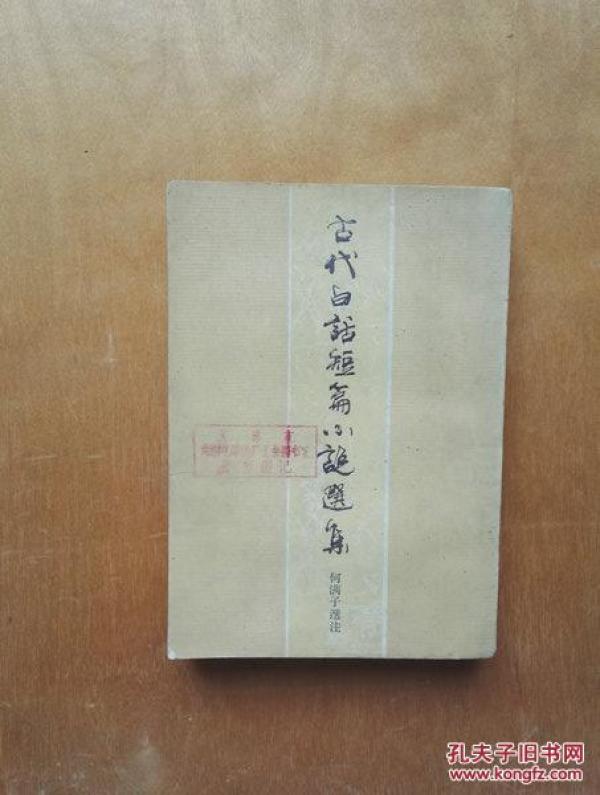 古代白話短篇小説選集
何满子选注
孔夫子旧书网
www.kongfz.com